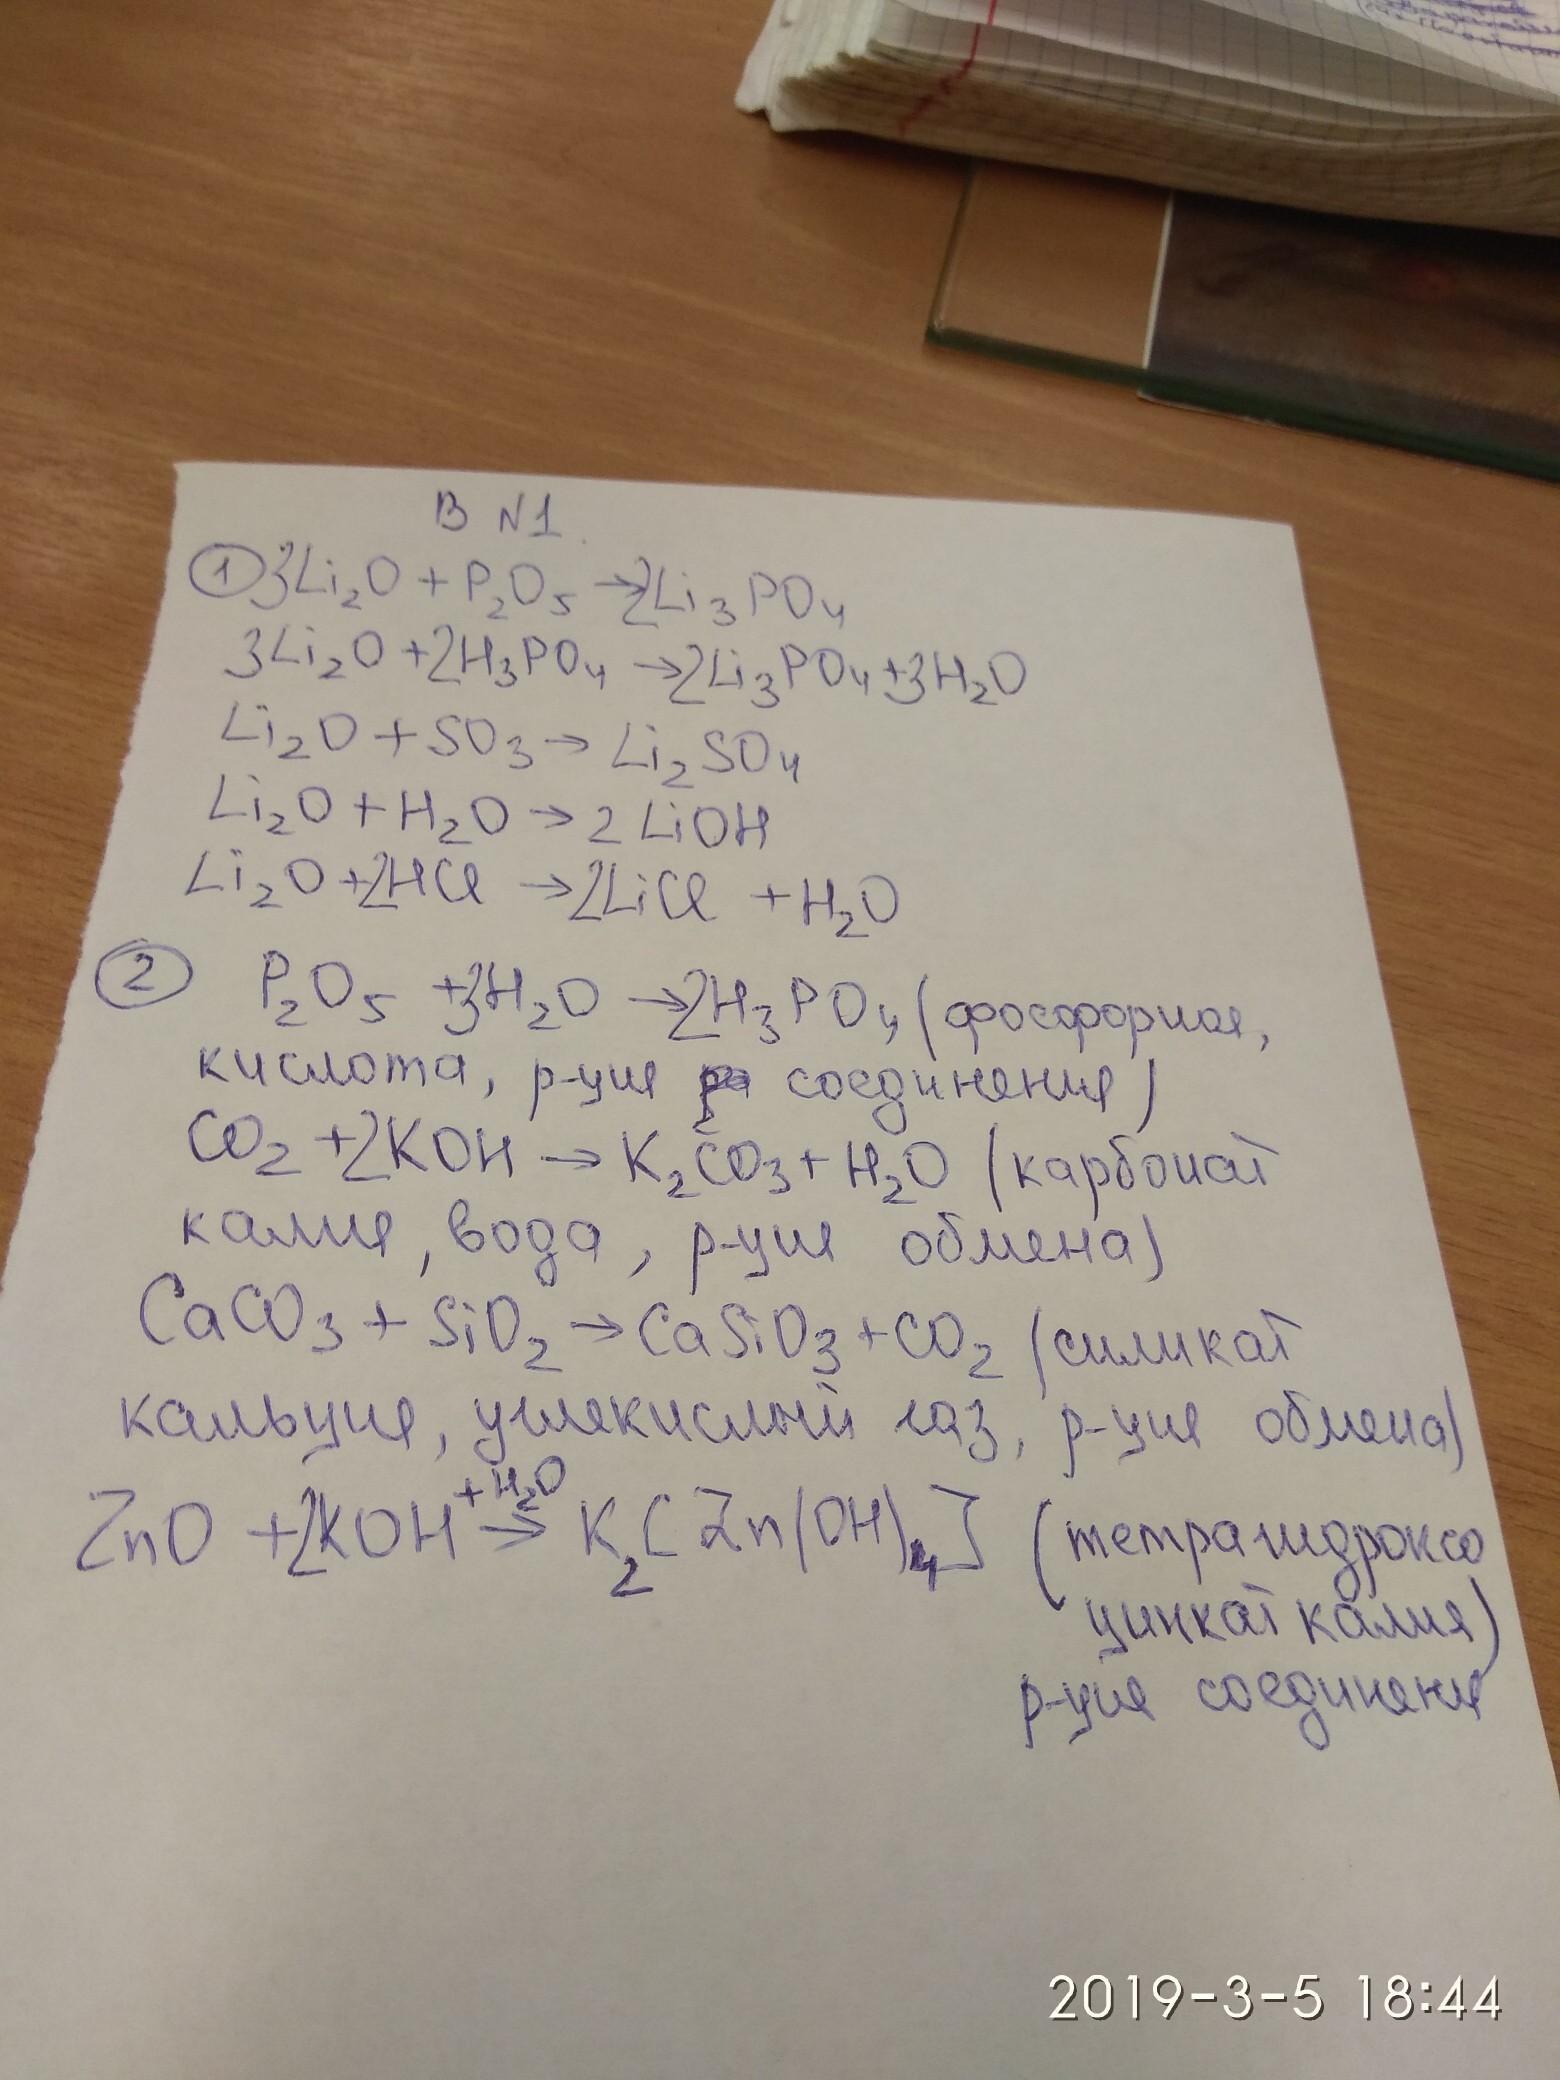 В N1
① 3Li₂O + P₂O₅ → 2Li₃PO₄
3Li₂O + 2H₃PO₄ → 2Li₃PO₄ + 3H₂O
Li₂O + SO₃ → Li₂SO₄
Li₂O + H₂O → 2LiOH
Li₂O + 2HCl → 2LiCl + H₂O
② P₂O₅ + 3H₂O → 2H₃PO₄ (фосфорная,
кислота, р-ция соединения)
CO₂ + 2KOH → K₂CO₃ + H₂O (карбонат
калия, вода, р-ция обмена)
CaCO₃ + SiO₂ → CaSiO₃ + CO₂ (силикат
кальция, углекислый газ, р-ция обмена)
+H₂O
ZnO + 2KOH → K₂[Zn(OH)₄] (тетрагидроксо
цинкат калия)
р-ция соединения
2019-3-5 18:44